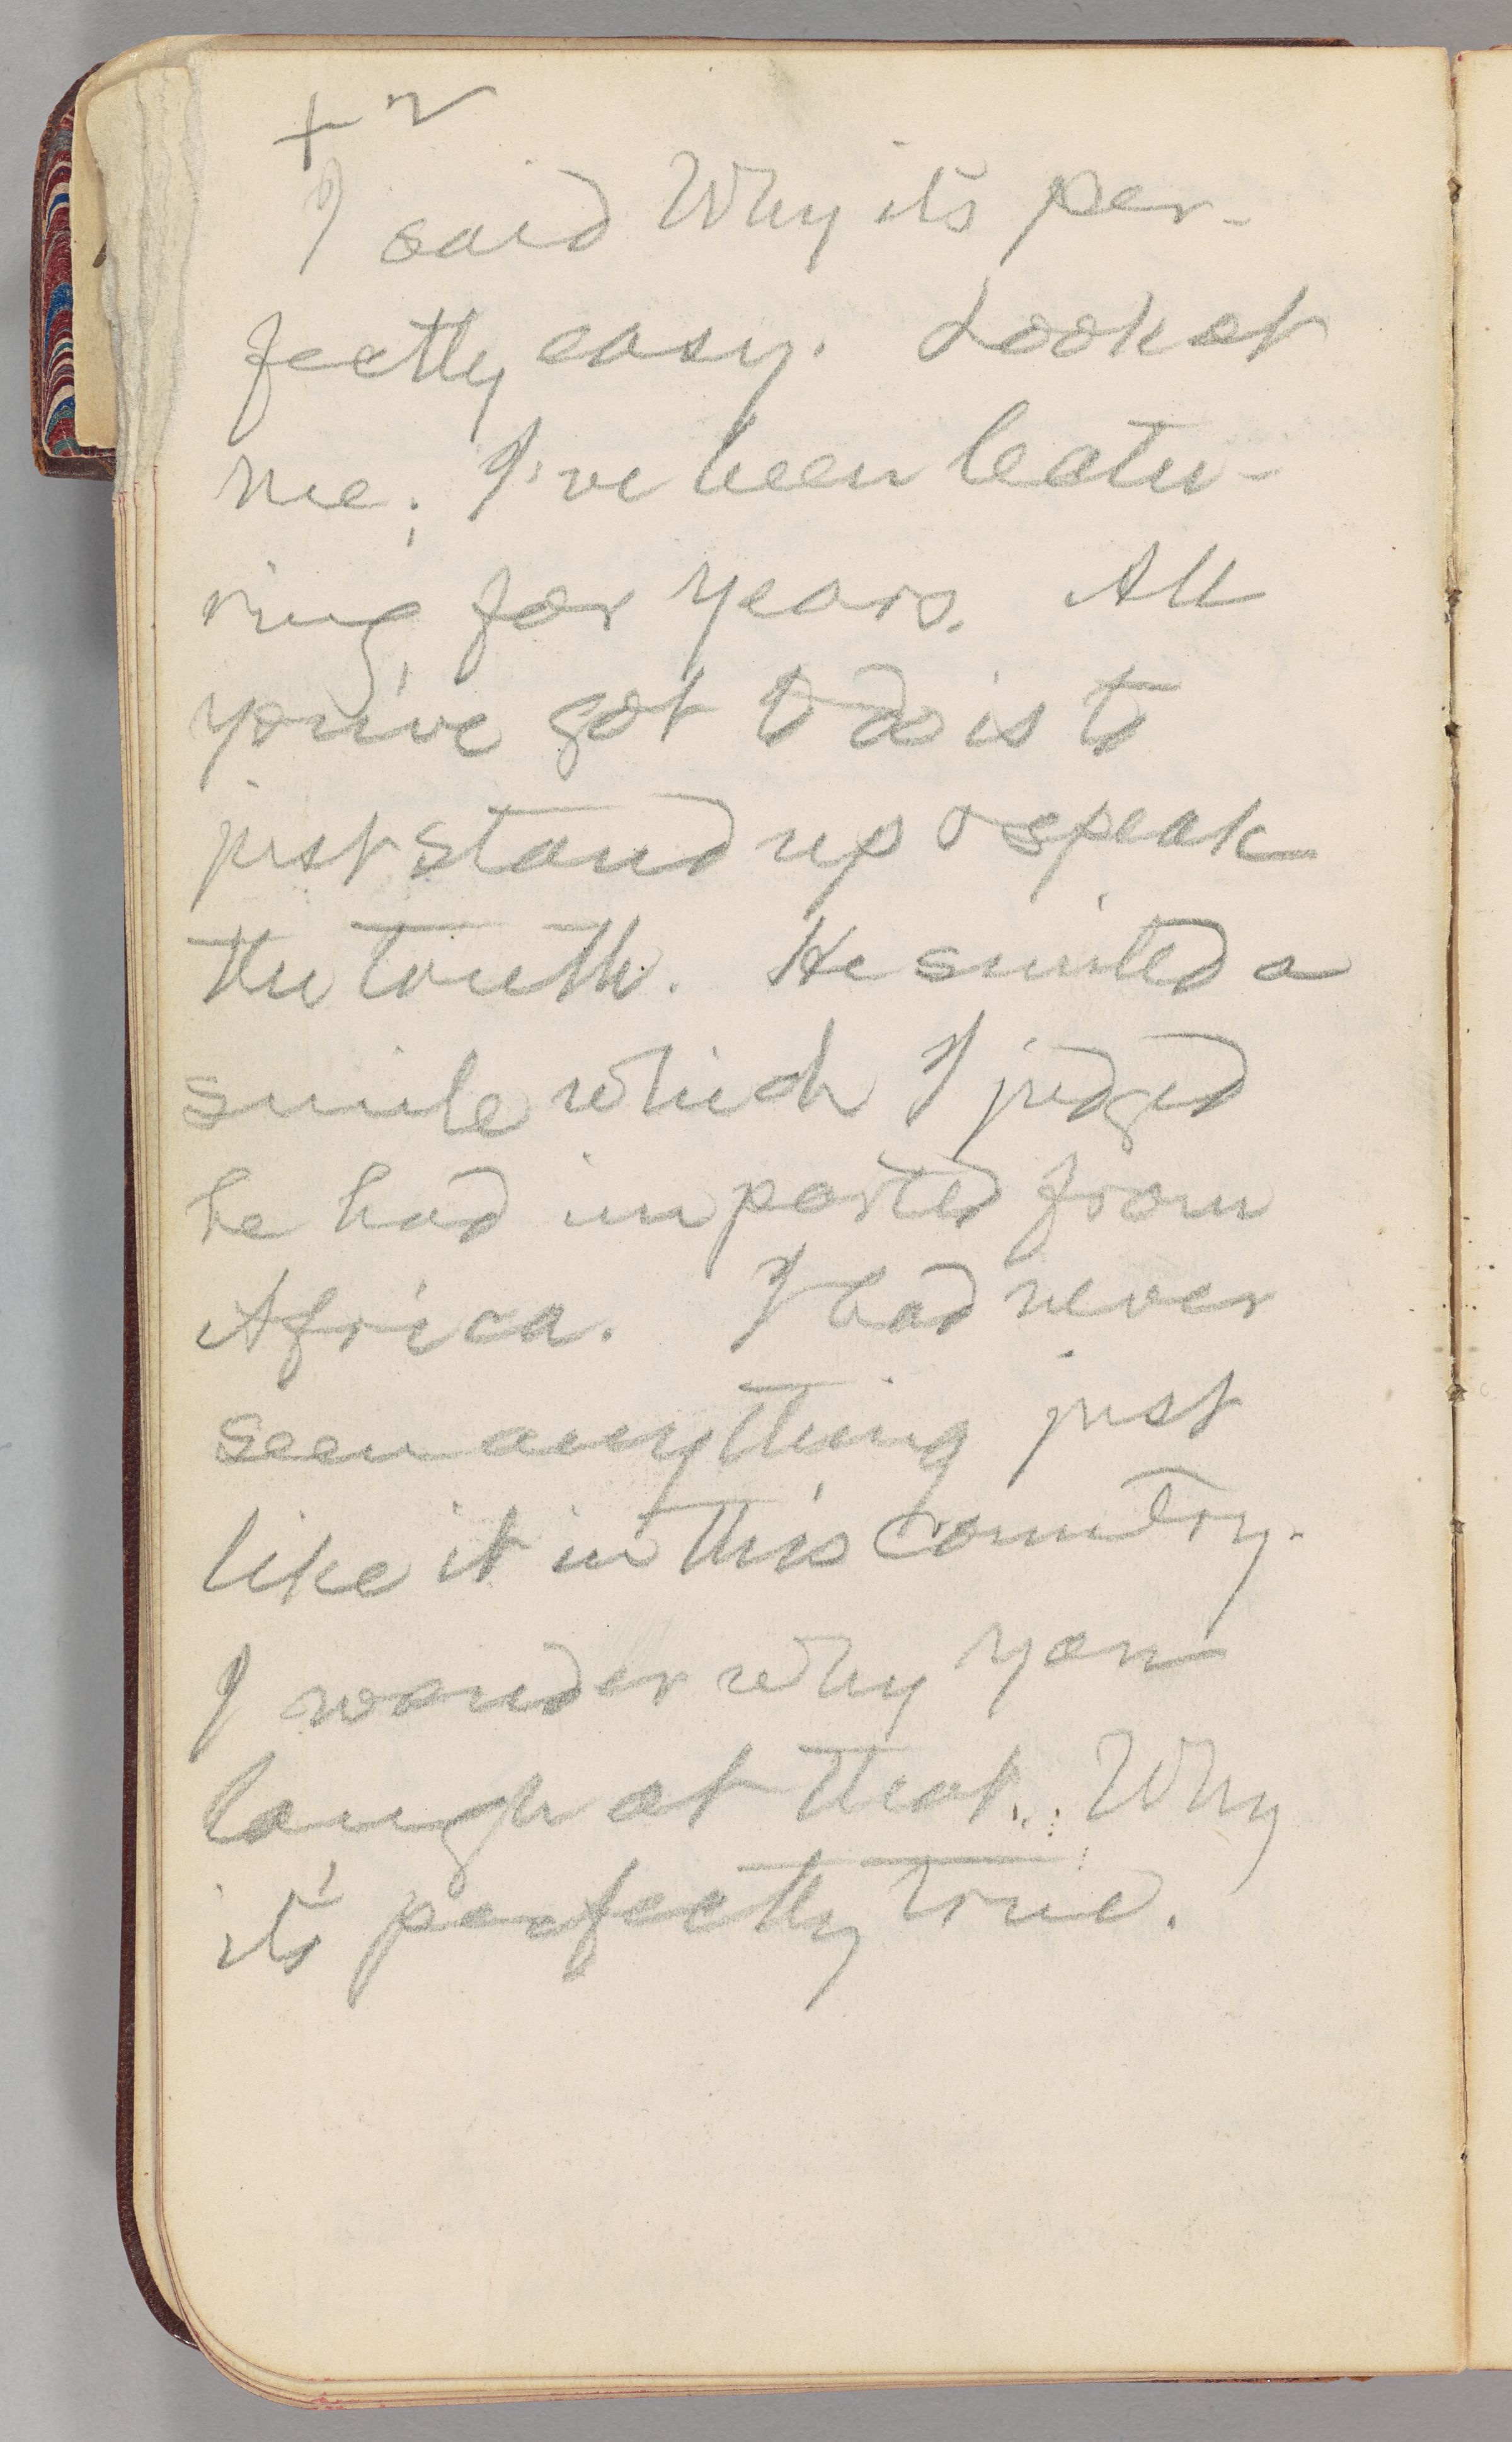 I said Why it's per-
fectly easy. Look at
me; I've been lectu-
ring for years. All
you've got to do is to
just stand up & speak
the truth. He smiled a
smile which I judged
he had imported from
Africa. I had never
seen anything just
like it in this country.
I wonder why you
laugh at that. Why
it's perfectly true.